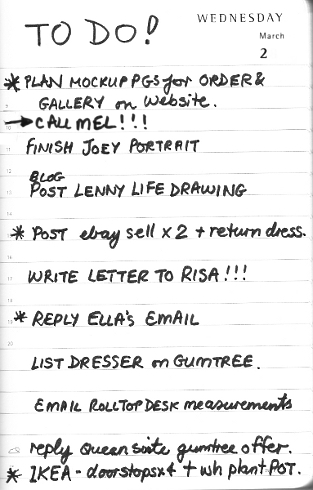 TO DO!
WEDNESDAY
March
2
* PLAN MOCKUP PGS for ORDER &
GALLERY on website.
→ CALL MEL!!!
FINISH JOEY PORTRAIT
BLOG
POST LENNY LIFE DRAWING
* POST ebay sell x 2 + return dress.
WRITE LETTER TO RISA!!!
* REPLY ELLA'S EMAIL
LIST DRESSER on GUMTREE.
EMAIL ROLLTOP DESK measurements
reply Queen suite gumtree offer.
* IKEA - doorstops x 4 + wh plant POT.